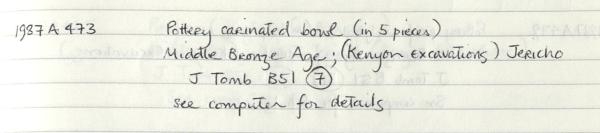 1987 A 473 Pottery carinated bowl (in 5 pieces)
Middle Bronze Age; (Kenyon excavations) Jericho
J Tomb B51 7
see computer for details